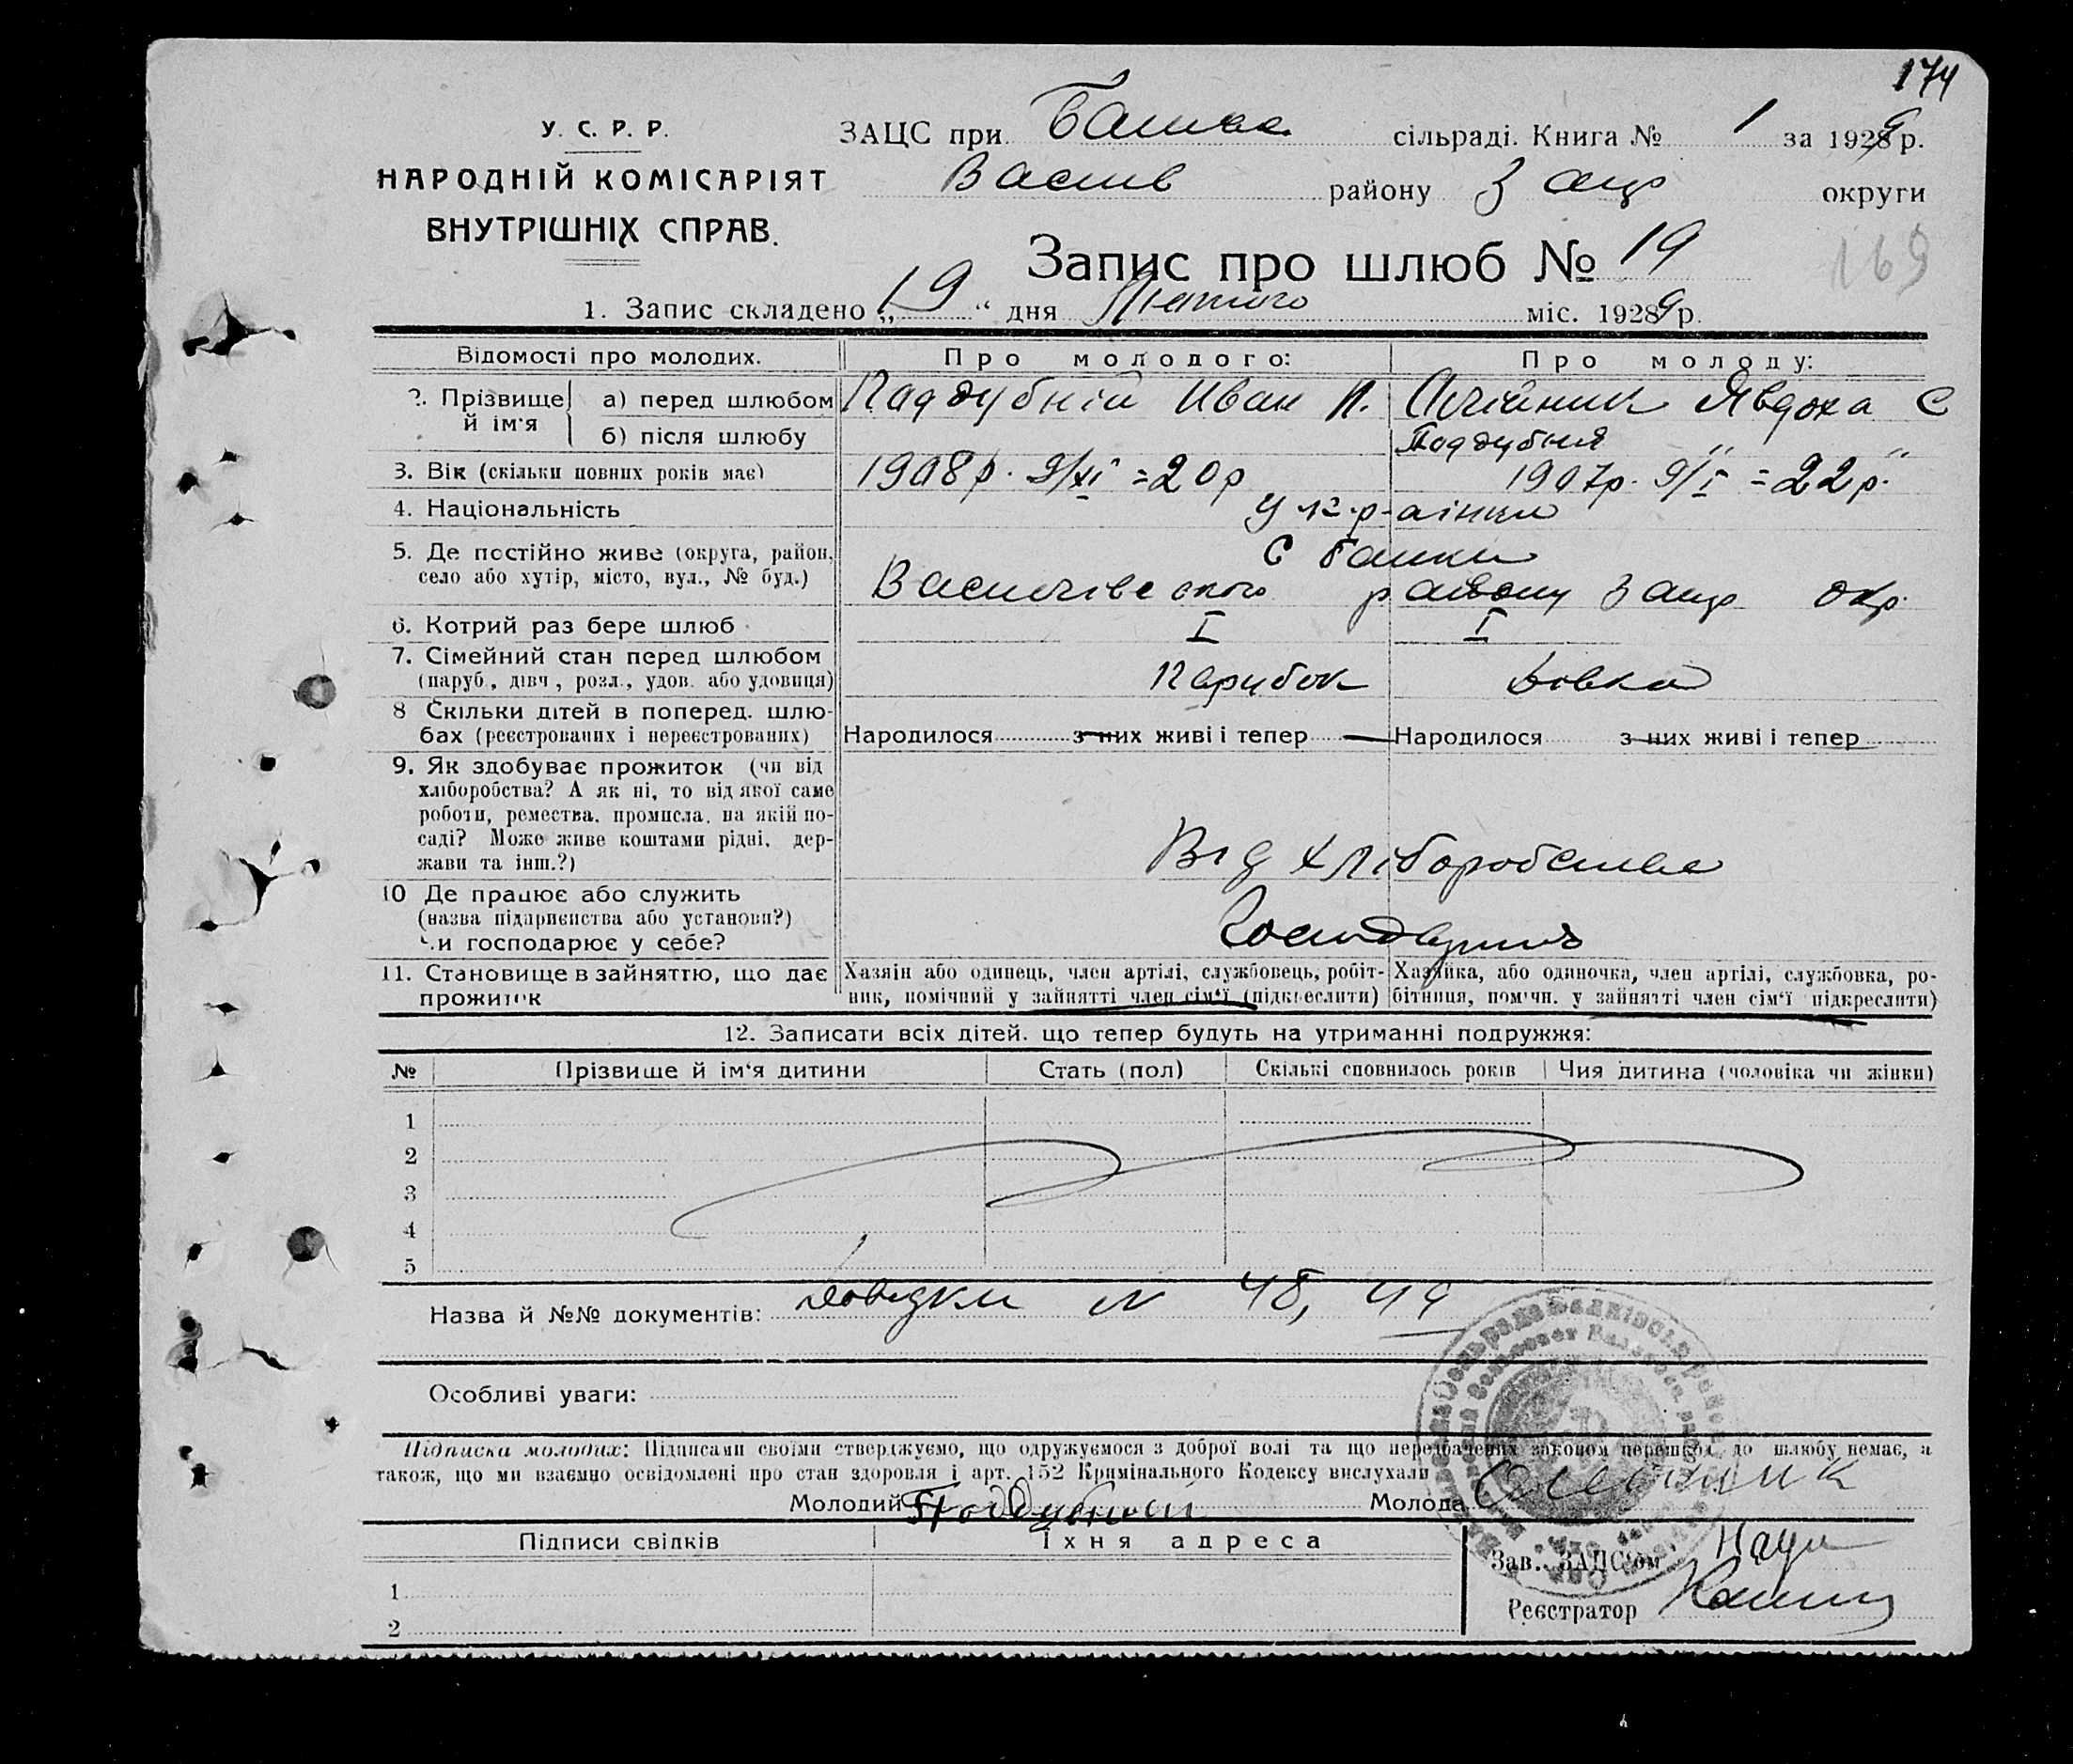 174
У. С. Р. Р.
НАРОДНІЙ КОМІСАРІЯТ
ВНУТРІШНІХ СПРАВ.
ЗАЦС при Балках сільраді. Книга № 1 за 1929 р.
Васил району Запор округи
Запис про шлюб № 19
169
1. Запис складено „19“ дня Лютого міс. 1929 р.
Відомості про молодих. Про молодого: Про молоду:
2. Прізвище й ім'я а) перед шлюбом Паддубній Иван П. Олійник Явдоха С
б) після шлюбу Поддубная " "
3. Вік (скільки повних років має) 1908 р. 9/XI = 20 р 1907 р. 9/I = 22 р.
4. Національність українци
5. Де постійно живе (округа, район, село або хутір, місто, вул., № буд.) С Балки
Василівського району Запор окр.
6. Котрий раз бере шлюб I I
7. Сімейний стан перед шлюбом
(паруб., дівч., розл., удов. або удовиця) Парубок Дівка
8 Скільки дітей в поперед. шлю-
бах (реєстрованих і нереєстрованих) Народилося з них живі і тепер Народилося з них живі і тепер
9. Як здобуває прожиток (чи від
хліборобства? А як ні, то від якої саме
роботи, ремества, промисла, на якій по-
саді? Може живе коштами рідні, дер-
жави та інш.?) Від хліборобства
10 Де працює або служить
(назва підприємства або установи?)
Чи господарює у себе? Господарюють
11. Становище в зайняттю, що дає прожиток
Хазяін або одинець, член артілі, службовець, робіт-
ник, помічний у зайнятті член сім'ї (підкреслити)
Хазяйка, або одиночка, член артілі, службовка, ро-
бітниця, помічн. у зайнятті член сім'ї підкреслити)
12. Записати всіх дітей, що тепер будуть на утриманні подружжя:
№ Прізвище й ім'я дитини Стать (пол) Скількі сповнилось років Чия дитина (чоловіка чи жінки)
1
2
3
4
5
Назва й №№ документів: Довідки № 48, 49
Особливі уваги:
Підписка молодих: Підписами своїми стверджуємо, що одружуємося з доброї волі та що передбачених законом перешкод до шлюбу немає, а
також, що ми взаємно освідомлені про стан здоровля і арт. 152 Кримінального Кодексу вислухали
Молодий Поддубный Молода Олейник
Підписи свідків Їхня адреса
Зав. ЗАЦС'ом
1
Реєстратор
2